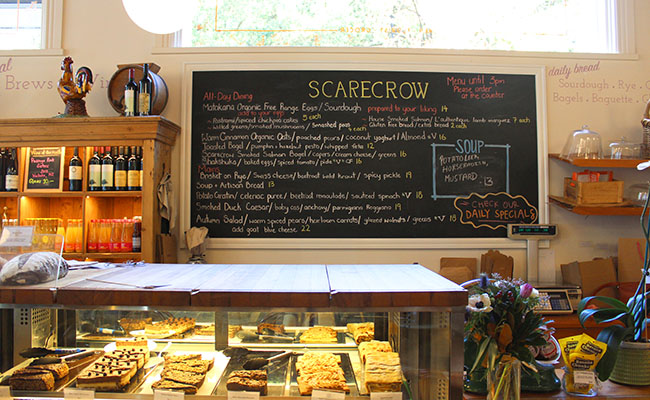 Brews
daily bread
Sourdough . Rye .
Bagels . Baguette .
SCARECROW
Menu until 3pm
Please order
at the counter
All-Day Dining
Matakana Organic Free Range Eggs / Sourdough prepared to your liking 14
and to your egg
5 each
- House Smoked Salmon / L'authentique lamb merguez 7 each
- wilted greens / smoked mushrooms / smashed peas
4 each
Gluten free bread / extra bread 2 each
Warm Cinnamon Organic Oats / poached pears / coconut yoghurt / Almond +V 16
Toasted Bagel / pumpkin + hazelnut pesto / whipped feta 12
Scarecrow Smoked Salmon Bagel / capers / cream cheese / greens 16
Shakshuka / baked eggs / spiced tomato / pide +V GF 16
Mains
Brisket on Rye / Swiss cheese / beetroot wild kraut / spicy pickle 19
Soup + Artisan Bread 13
Potato Gratin / celeriac puree / beetroot remoulade / sauteed spinach +V 18
Smoked Duck Caesar / baby cos / anchovy / parmigiano Reggiano 19
Autumn Salad / warm spiced pears / heirloom carrots / glazed walnuts / greens +V 18
add goat blue cheese 22
SOUP
POTATO LEEK
HORSERADISH,
MUSTARD 13
CHECK OUR
DAILY SPECIALS